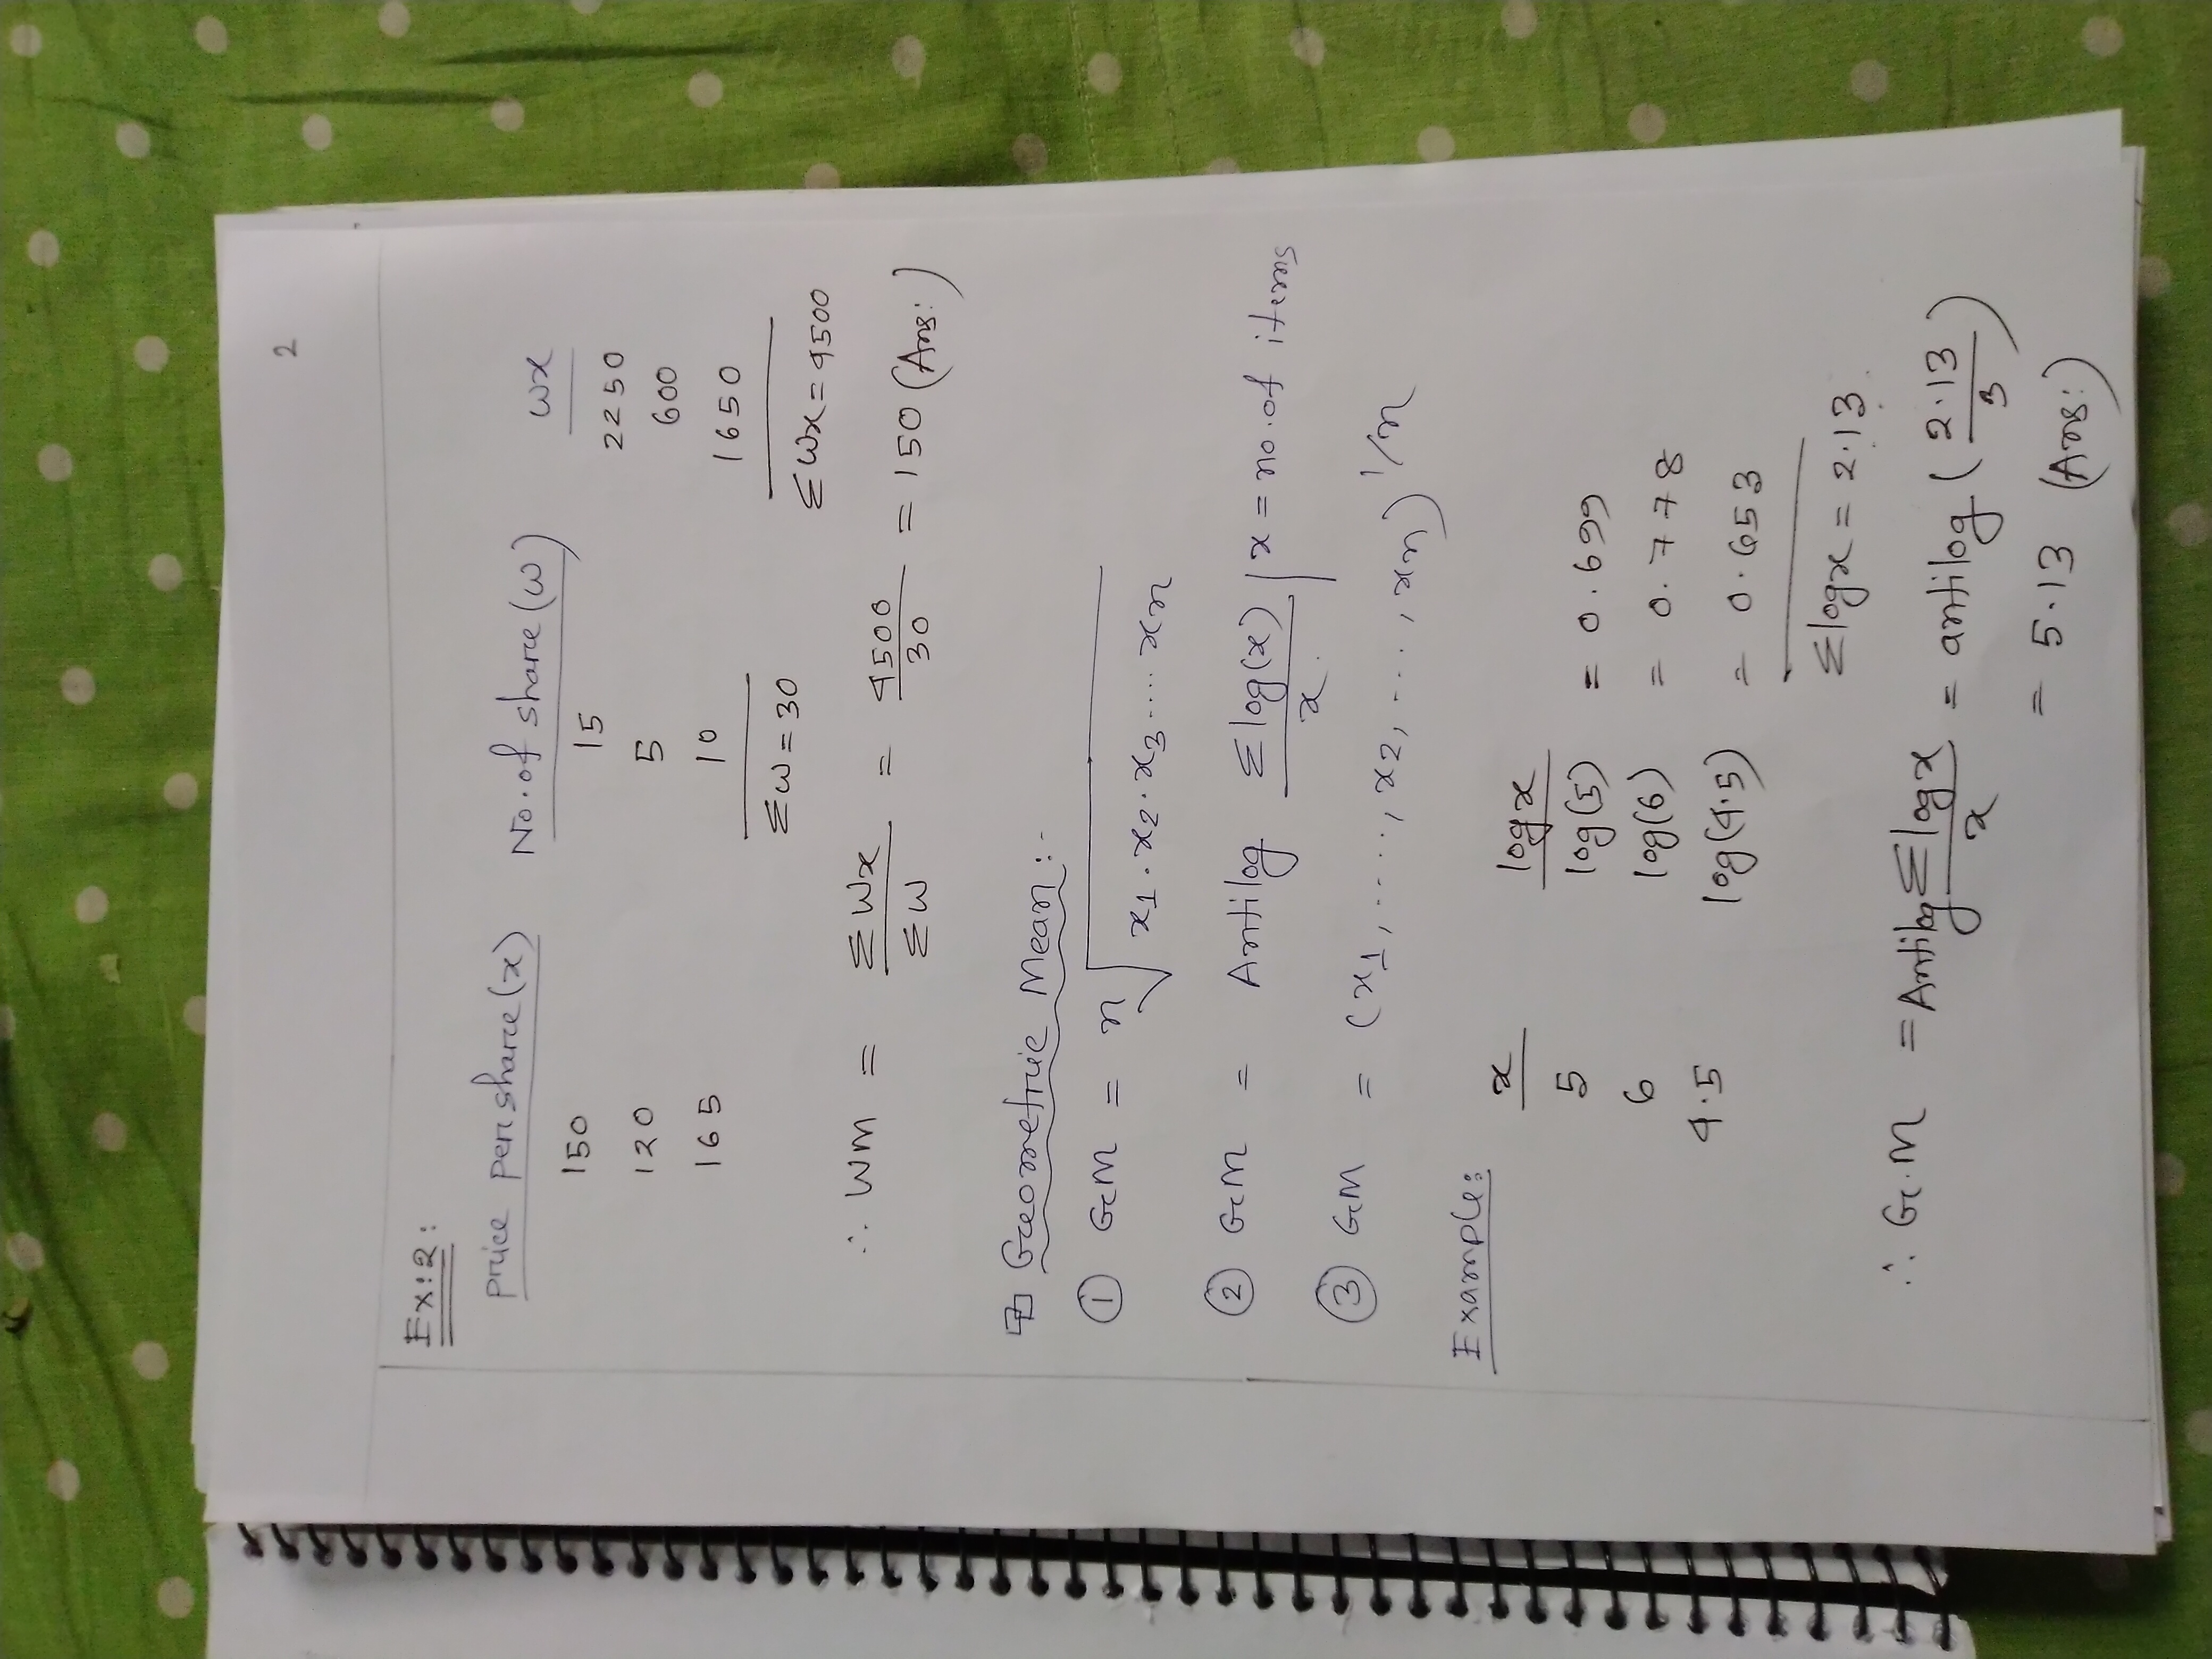 2
Ex:2:
Price per share (x) No. of share (w) wx
150 15 2250
120 5 600
165 10 1650
Σw = 30 Σwx = 4500
∴ WM = Σwx/Σw = 4500/30 = 150 (Ans:)
Geometric Mean:-
① GM = n√x1·x2·x3....xn
② GM = Antilog Σlog(x)/x | x = no. of items
③ GM = (x1, ...., x2, ..., xn)^1/n
Example:
x log x
5 log(5) = 0.699
6 log(6) = 0.778
4.5 log(4.5) = 0.653
Σlogx = 2.13
∴ G.M = Antilog Σlogx/x = antilog (2.13/3)
= 5.13 (Ans:)